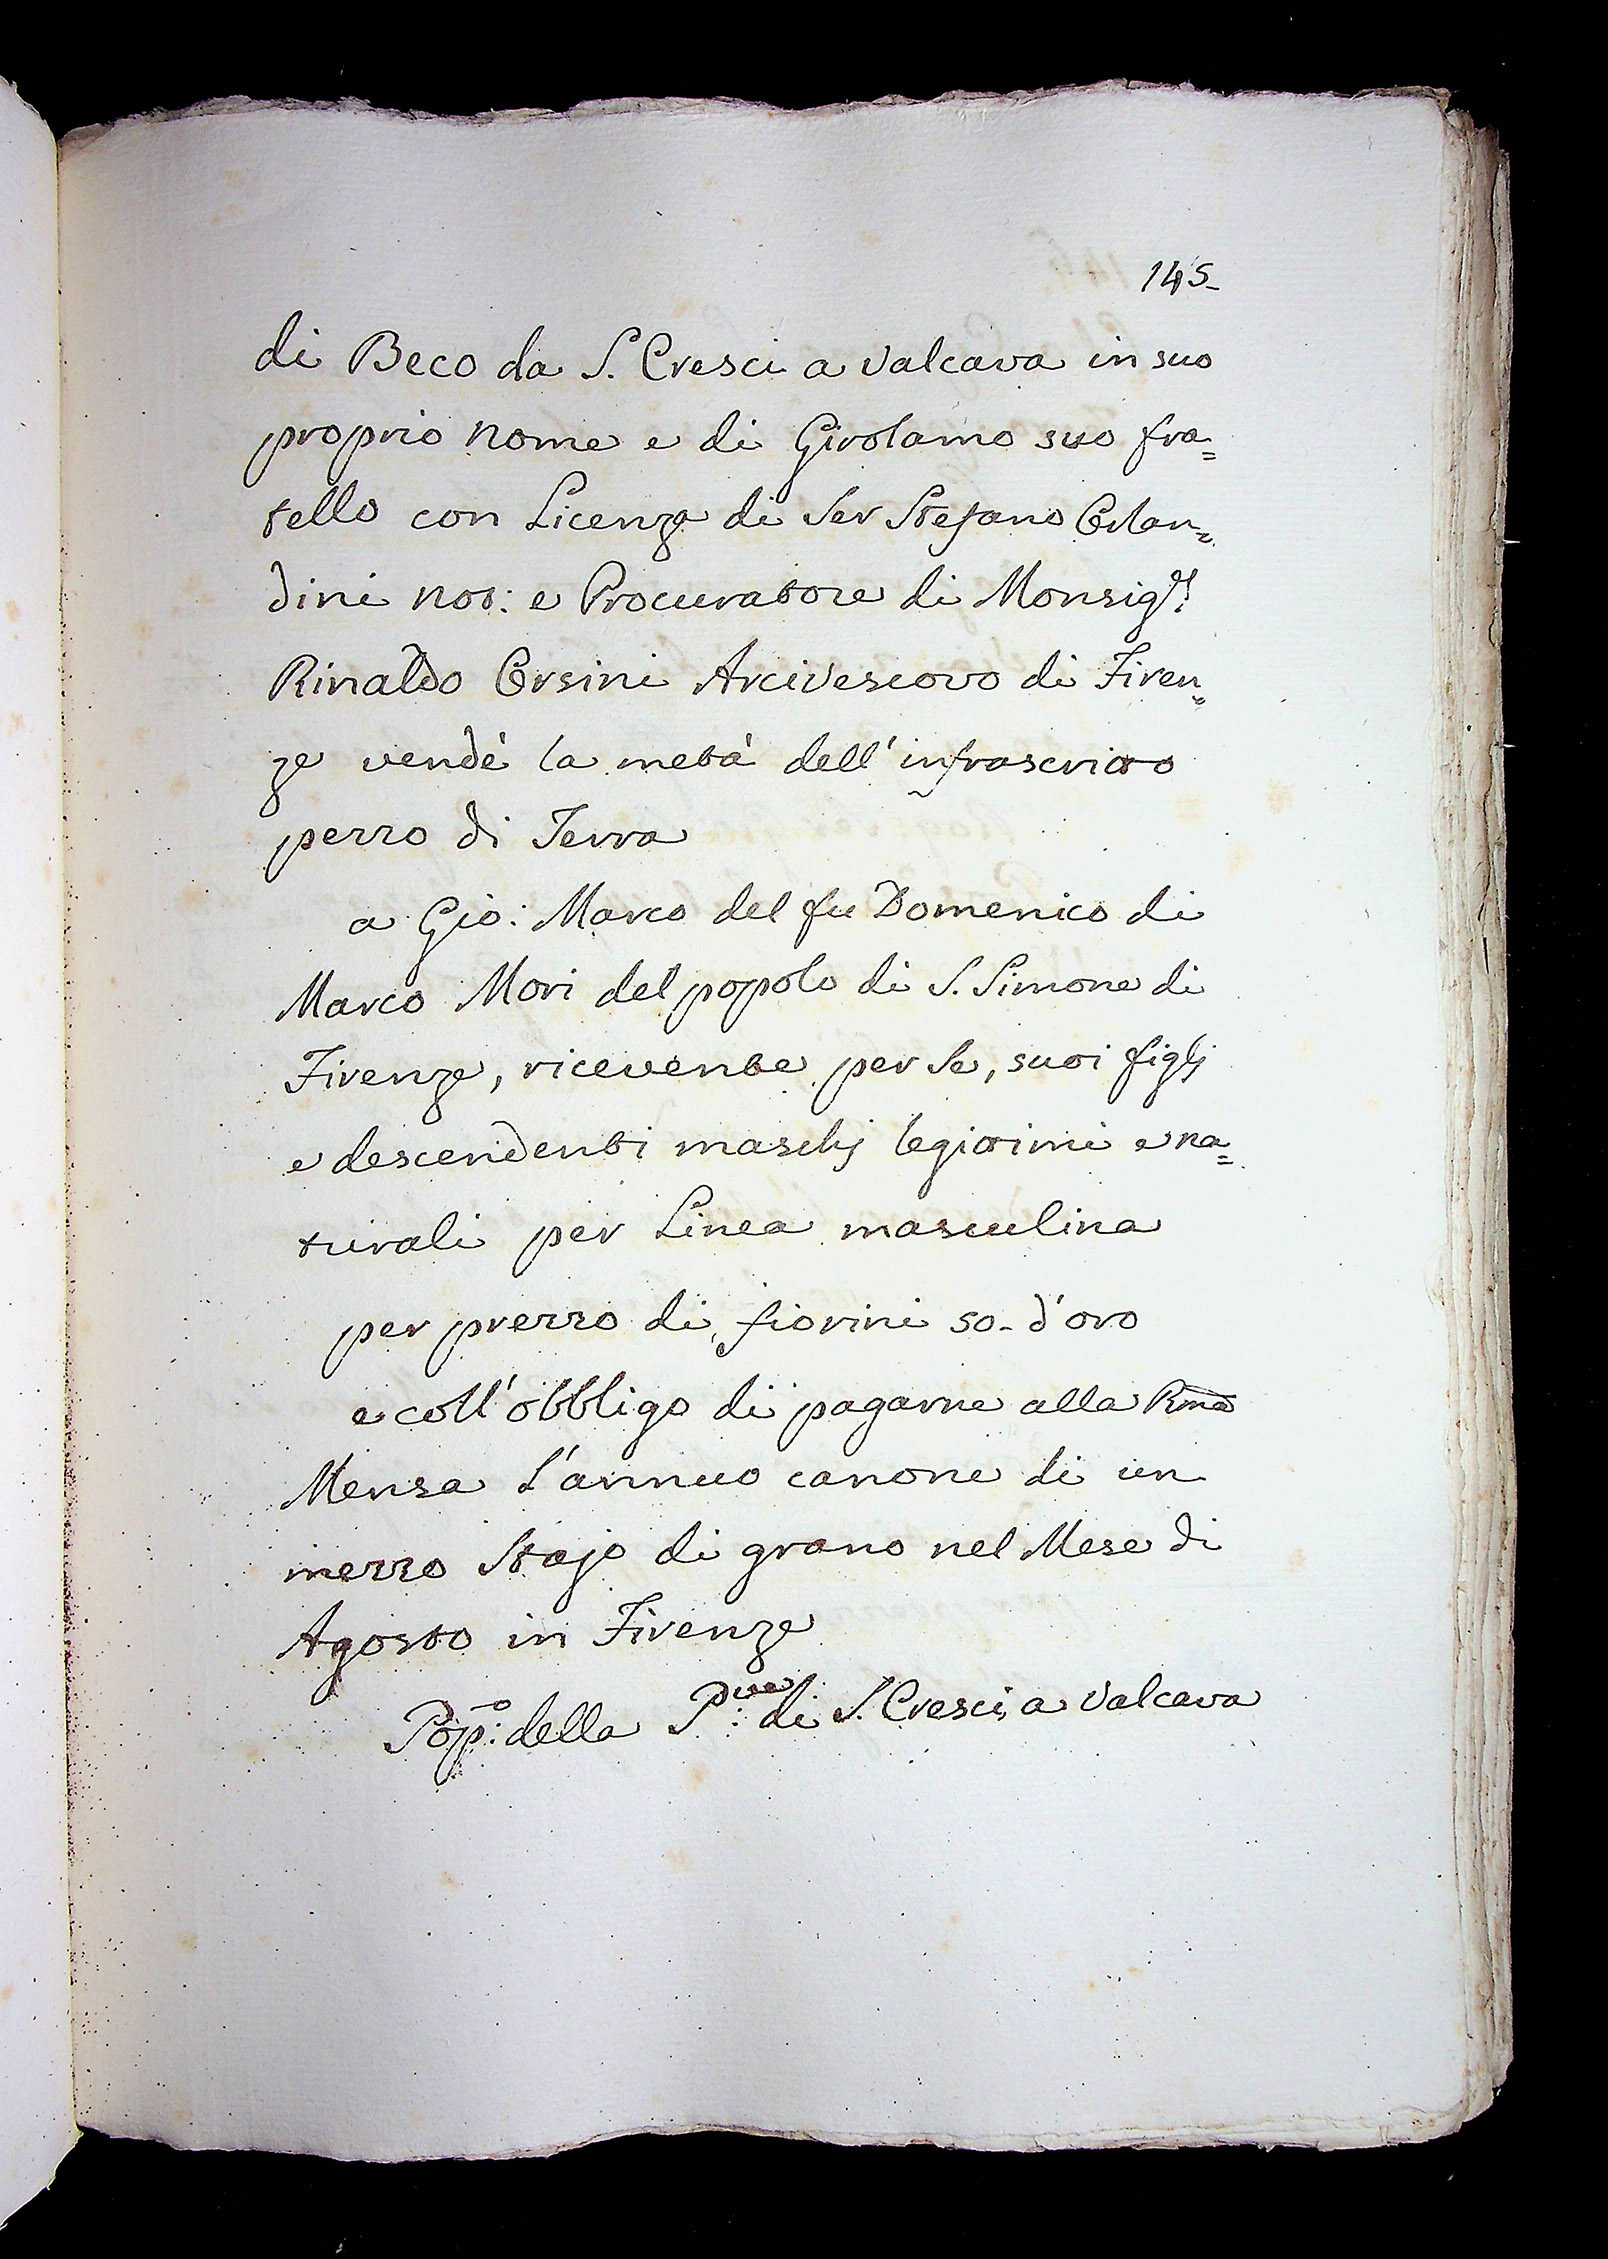 145.
di Beco da S. Cresci a Valcava in suo
proprio nome e di Girolamo suo fra=
tello con Licenza di Ser Stefano Orlan=
dini not: e Procuratore di Monsig.r
Rinaldo Orsini Arcivescovo di Firen=
ze vendè la metà dell'infrascritto
pezzo di Terra
a Gio: Marco del fu Domenico di
Marco Mori del popolo di S. Simone di
Firenze, ricevente per se, suoi figlj
e descendenti maschj legittimi e na=
turali per Linea masculina
per prezzo di fiorini 50. d'oro
e coll'obbligo di pagarne alla Rma
Mensa l'annuo canone di un
mezzo Stajo di grano nel Mese di
Agosto in Firenze
Pop:o della P:ve di S. Cresci a Valcava